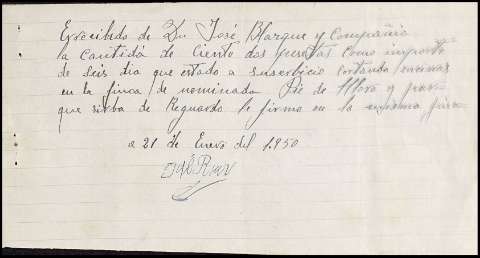 Erecibido de Dn José Blazque y Compañia
la cantidá de Ciento dos pesetas como importe
de seis dia que estado a suserbicio cortando encinas
en la finca de nominada Pie de Moro y para
que sirba de Reguardo le firmo en la misma finca
a 21 de Enero del 1.950